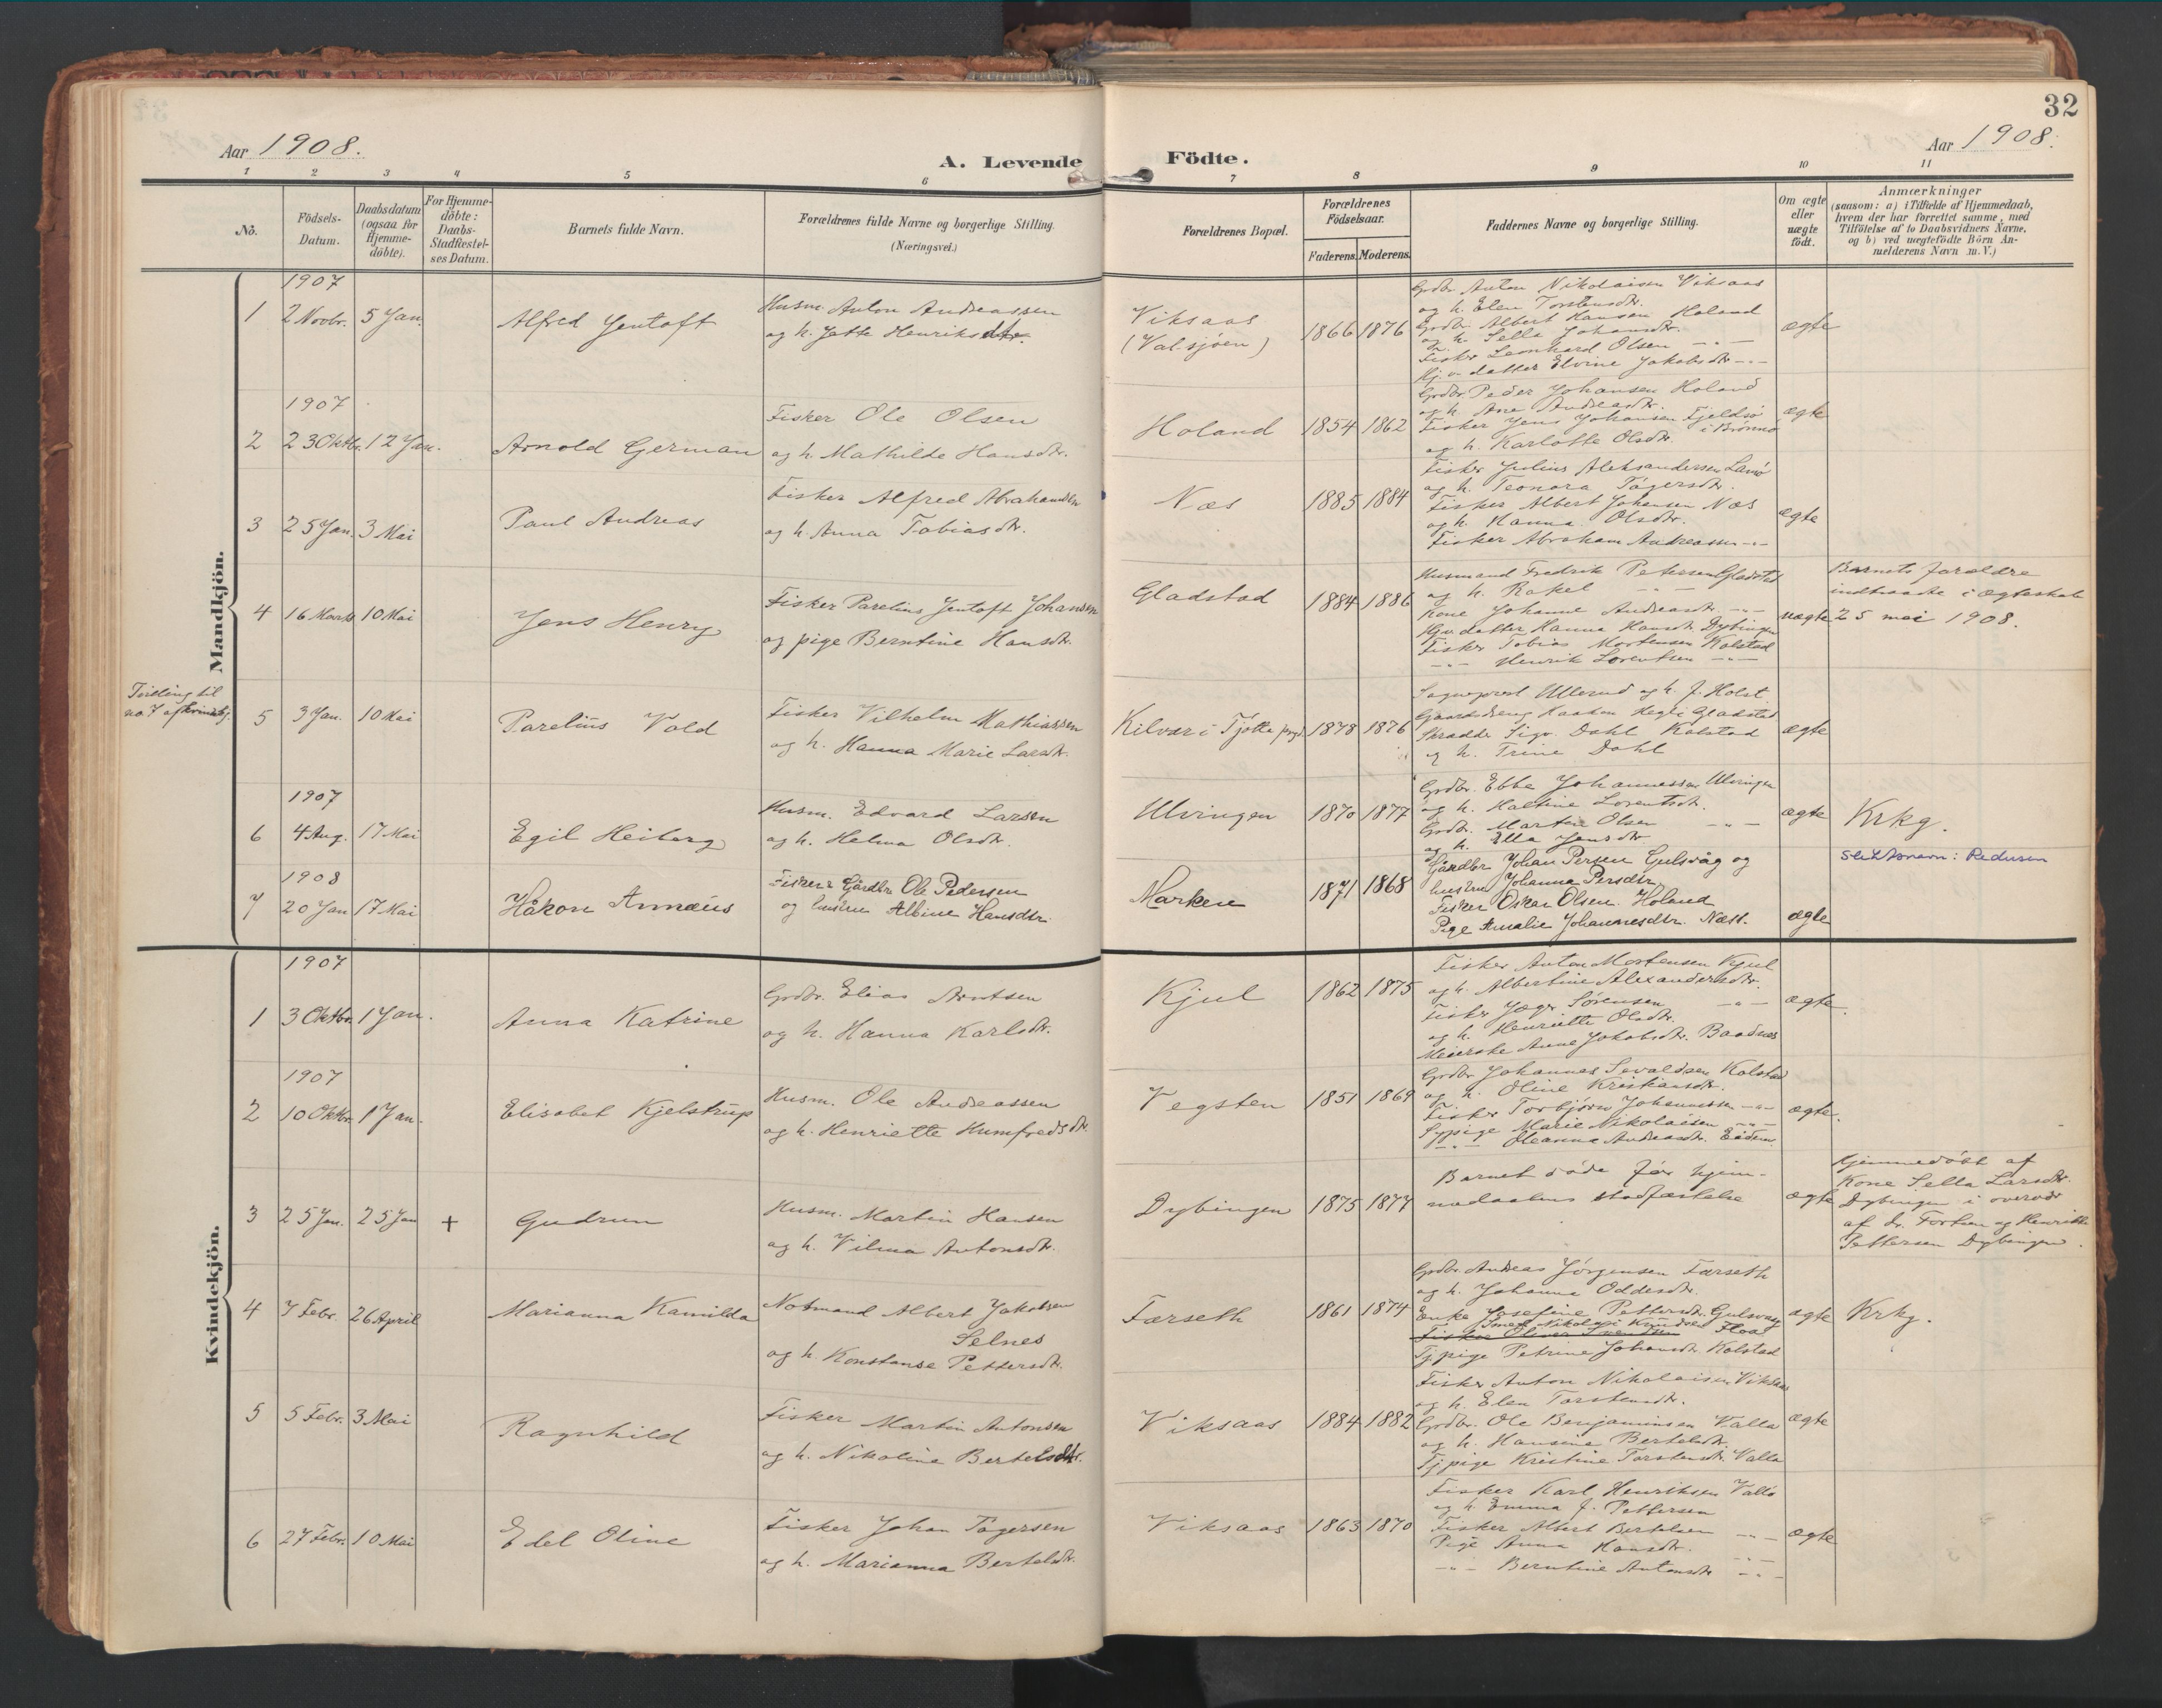 32
Aar 1908.
A. Levende Födte.
Aar 1908.
1 2 3 4 5 6 7 8 9 10 11
Nô.
Födsels-Datum.
Daabsdatum (ogsaa for Hjemme-döbte).
For Hjemme-döbte: Daabs-Stadfæstel-ses Datum.
Barnets fulde Navn.
Forældrenes fulde Navne og borgerlige Stilling. (Næringsvei.)
Forældrenes Bopæl.
Forældrenes Födselsaar.
Faderens. Moderens.
Faddernes Navne og borgerlige Stilling.
Om ægte eller uægte födt.
Anmærkninger
(saasom: a) i Tilfælde af Hjemmedaab, hvem der har forrettet samme, med Tilföielse af to Daabsvidners Navne, og b) ved uægtefödte Börn An-melderens Navn m. V.)
Mandkjön.
1907
1 2 Novbr. 5 Jan. Alfred Jentoft
Husm. Anton Andreassen
og h. Jette Henriksdtr.
Viksaas
(Valsjöen)
1866 1876
Grdbr. Anton Nikolaisen Viksaas
og h. Elen Torstensdtr.
Grdbr. Albert Hansen Holand
og h. Sella Johansdtr.
Fisker Leonhard Olsen -"-
Hjv. datter Elvine Jakobsdtr -"-
ægte
1907
2 23 Oktbr. 12 Jan. Arnold German
Fisker Ole Olsen
og h. Mathilde Hansdtr.
Holand
1854 1862
Grdbr. Peder Johansen Holand
og h. Ane Andreasdtr.
Fisker Jens Johansen Fjeldsö i Brönnö
og h. Karlotte Olsdtr.
ægte
3 25 Jan. 3 Mai Paul Andreas
Fisker Alfred Abrahamsen
og h. Anna Tobiasdtr.
Næs
1885 1884
Fisker Julius Aleksandersen
og h. Teonora Tögersdtr.
Fisker Albert Johansen Næs
og h. Hanna Olsdtr.
Fisker Abraham Andreassen -"-
ægte
4 16 Marts 10 Mai Jens Henry
Fisker Parelius Jentoft Johansen
og pige Berntine Hansdtr.
Gladstad
1884 1886
Husmand Fredrik Petersen Gladstad
og h. Rakel -"-
Kone Johanne Andreasdtr. -"-
Hjv. datter Hanna Hansdtr. Dybingen
Fisker Tobias Mortensen Kolstad
-"- Henrik Lorentsen -"-
uægte
Barnets forældre
indtraadte i ægteskab
25 mai 1908.
Tvilling til
no 7 af kvindekj.
5 3 Jan. 10 Mai Parelius Vold
Fisker Vilhelm Mathiassen
og h. Hanna Marie Larsdtr.
Kilvær i Tjötta prgd.
1878 1876
Sogneprest Ullerud og h. J. Holst
Gaardsdreng Haakon Hegli Gladstad
Skrædde Sigv. Dahl Kolstad
og h. Trine Dahl
ægte
1907
6 4 Aug. 17 Mai Egil Heiberg
Husm. Edvard Larsen
og h. Helma Olsdtr.
Ulvingen
1870 1877
Grdbr. Ebbe Johannessen Ulvingen
og h. Haltine Lorentsdtr.
Grdbr. Martin Olsen -"-
og h. Ella Jensdtr.
ægte
Krkg.
1908
7 20 Jan 17 Mai Håkon Annæus
Fisker & Gårdbr Ole Pedersen
og hustru Albine Hansdtr.
Marken
1871 1868
Gårdbr Johan Persen Gulsvåg og
hustru Johanna Persdtr
Fisker Oskar Olsen. Holand
Pige Amalie Johannesdtr. Næss.
ægte
Slektsnavn: Pedersen
Kvindekjön.
1907
1 3 Oktbr. 1 Jan. Anna Katrine
Grdbr. Elias Arntsen
og h. Hanna Karlsdtr.
Kjul
1862 1875
Fisker Anton Mortensen Kjul
og h. Albertine Alexandersdtr.
Fisker Jæger Sörensen -"-
og h. Henriette Olsdtr.
Meierske Anne Jakobsdtr. Baadnes
ægte.
1907
2 10 Oktbr. 1 Jan. Elisabet Kjelstrup
Husm. Ole Andreassen
og h. Henriette Humfredsdtr.
Vegsten
1851 1869
Grdbr Johannes Sevaldsen Kolstad
og h. Oline Kristiansdtr.
Fisker Torbjörn Johannessen -"-
Sypige Marie Nikolaisen -"-
-"- Oleanna Andreasdtr. Eidem.
ægte.
3 25 Jan. 25 Jan + Gudrun
Husm. Martin Hansen
og h. Vilma Antonsdtr.
Dybingen
1875 1877
Barnet döde för hjem-
medaabens stadfæstelse
ægte
Hjemmedöbt af
Kone Sella Larsdtr.
Dybingen i overvær
af Fortien og Henrikke
Pettersen Dybingen.
4 7 Febr. 26 April Marianna Kamilda
Notmand Albert Jakobsen
Selnes
og h. Konstanse Pettersdtr.
Færseth
1861 1874
Grdbr. Andreas Jörgensen Færseth
og h. Johanna Oddesdtr.
Enke Josefine Pettersdtr. Gulsvaag
Smed Nikolai Knudsen Floa
Fisker Oliver Svendsen
Tj.pige Petrine Johansdtr. Kolstad
ægte
Krkg.
5 5 Febr. 3 Mai Ragnhild
Fisker Martin Antonsen
og h. Nikoline Bertelsdtr.
Viksaas
1884 1882
Fisker Anton Nikolaisen Viksaas
og h. Elen Torstensdtr.
Grdbr. Ole Benjaminsen Valla
og h. Hansine Bertelsdtr.
Tj.pige Kristine Torstensdtr. Valla
ægte
6 27 Febr. 10 Mai Edel Oline
Fisker Johan Tögersen
og h. Marianna Bertelsdtr.
Viksaas
1863 1870
Fisker Karl Henriksen Vallö
og h. Emma J. Pettersen
Fisker Albert Bertelsen -"-
Pige Anna Hansdtr. -"-
-"- Berntine Antonsdtr -"-
ægte